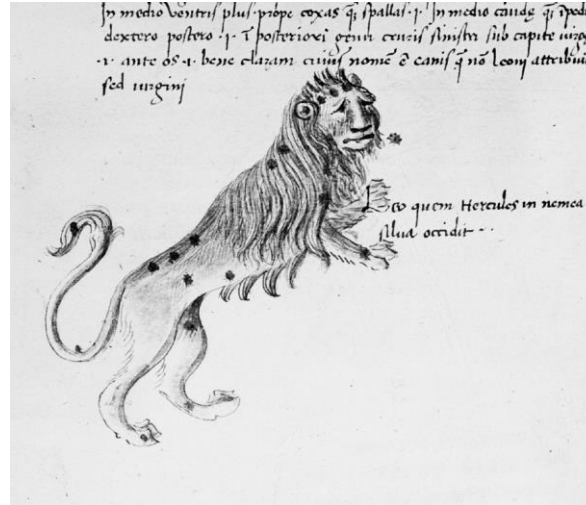 In medio Ventris plus prope coxas q̄ spallas · 1 · In medio caude q̄
dextero postero · 1 · ī posteriori genu cruris sinistri sub capite
· 1 · ante os · 1 · bene claram cuius nomē ē canis q̄ nō leoni
sed virgini
Leo quem Hercules in nemea
silua occidit · ·